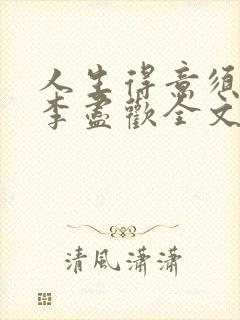 人生得意須
李盡歡全文
清風瀟瀟